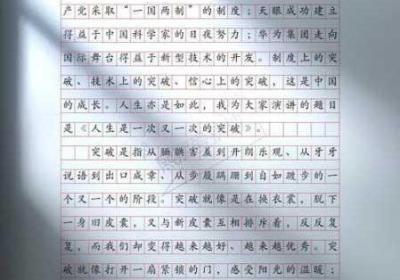 产党采取“一国两制”的制度；天眼成功建立
得益于中国科学家的日夜努力；华为集团走向
国际舞台得益于新型技术的开发。制度上的突
破、技术上的突破、信心上的突破，这是中国
的成长。人生亦是如此，我为大家演讲的题目
是《人生是一次又一次的突破》。
突破是指从腼腆害羞到开朗乐观、从牙牙
说语到出口成章、从步履蹒跚到自如跋步的一
个又一个的阶段。突破就像是在换衣裳，脱下
一身旧皮囊，又与新皮囊互相排斥着，反反复
复，而我们却变得越来越好、越来越优秀。突
破就像打开一扇紧锁的门，感受阳光的温暖；